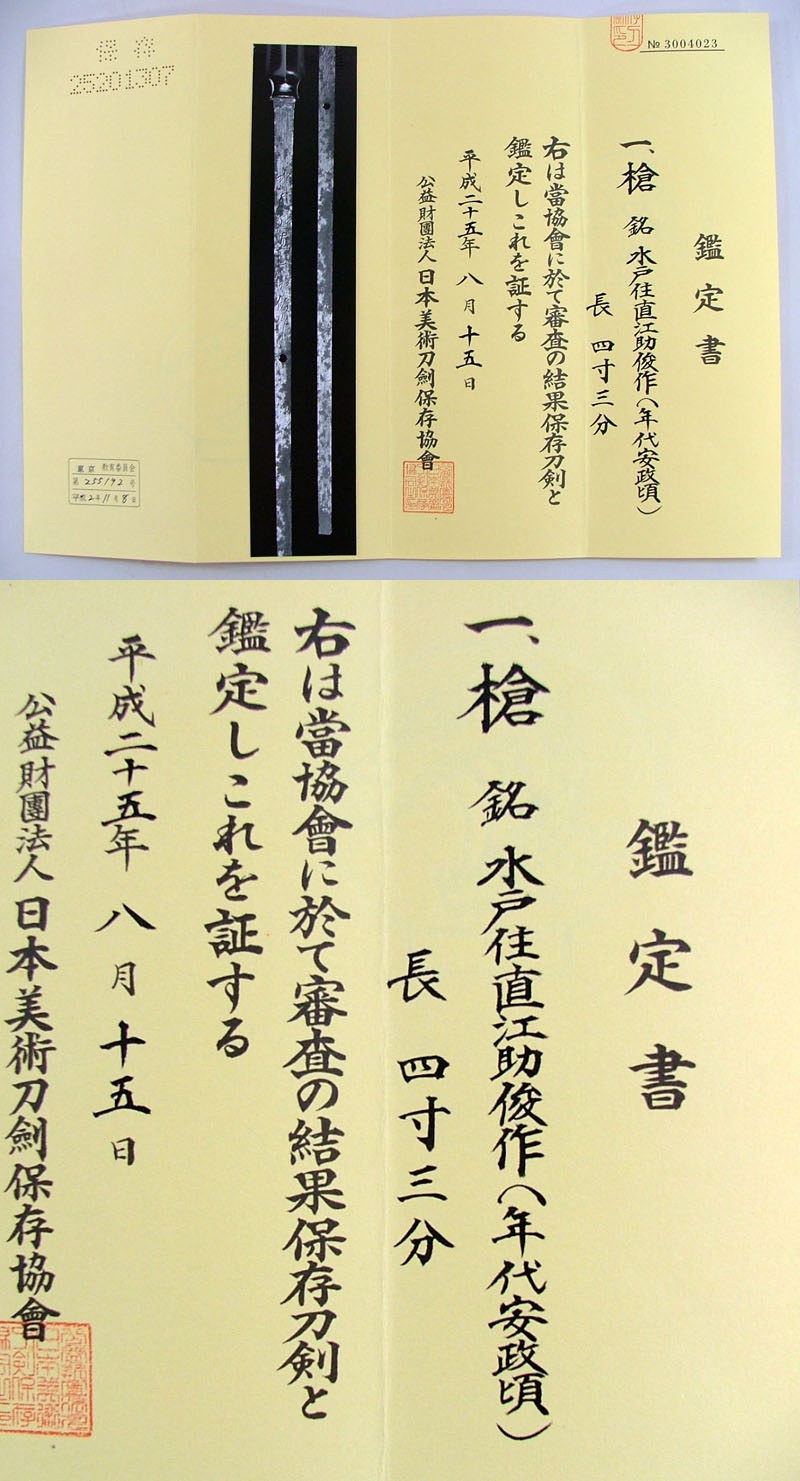 № 3004023
鑑定書
一、槍 銘 水戸住直江助俊作(年代安政頃)
長 四寸三分
右は當協會に於て審査の結果保存刀剣と
鑑定しこれを証する
平成二十五年 八月十五日
公益財團法人 日本美術刀劍保存協會
保存
25201307
東京 教育委員会
第 255192 号
平成2年11月8日
鑑定書
一、槍 銘 水戸住直江助俊作(年代安政頃)
長 四寸三分
右は當協會に於て審査の結果保存刀剣と
鑑定しこれを証する
平成二十五年 八月十五日
公益財團法人 日本美術刀劍保存協會